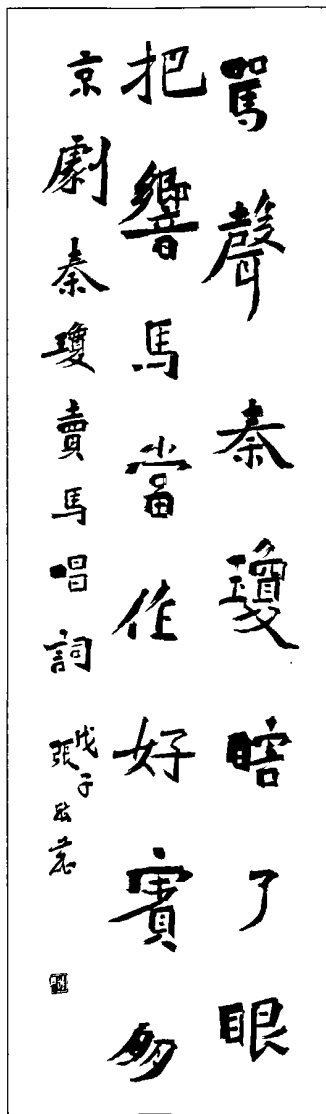 駡聲秦瓊瞎了眼
把響馬當作好賓朋
京劇秦瓊賣馬唱詞
戊子
張